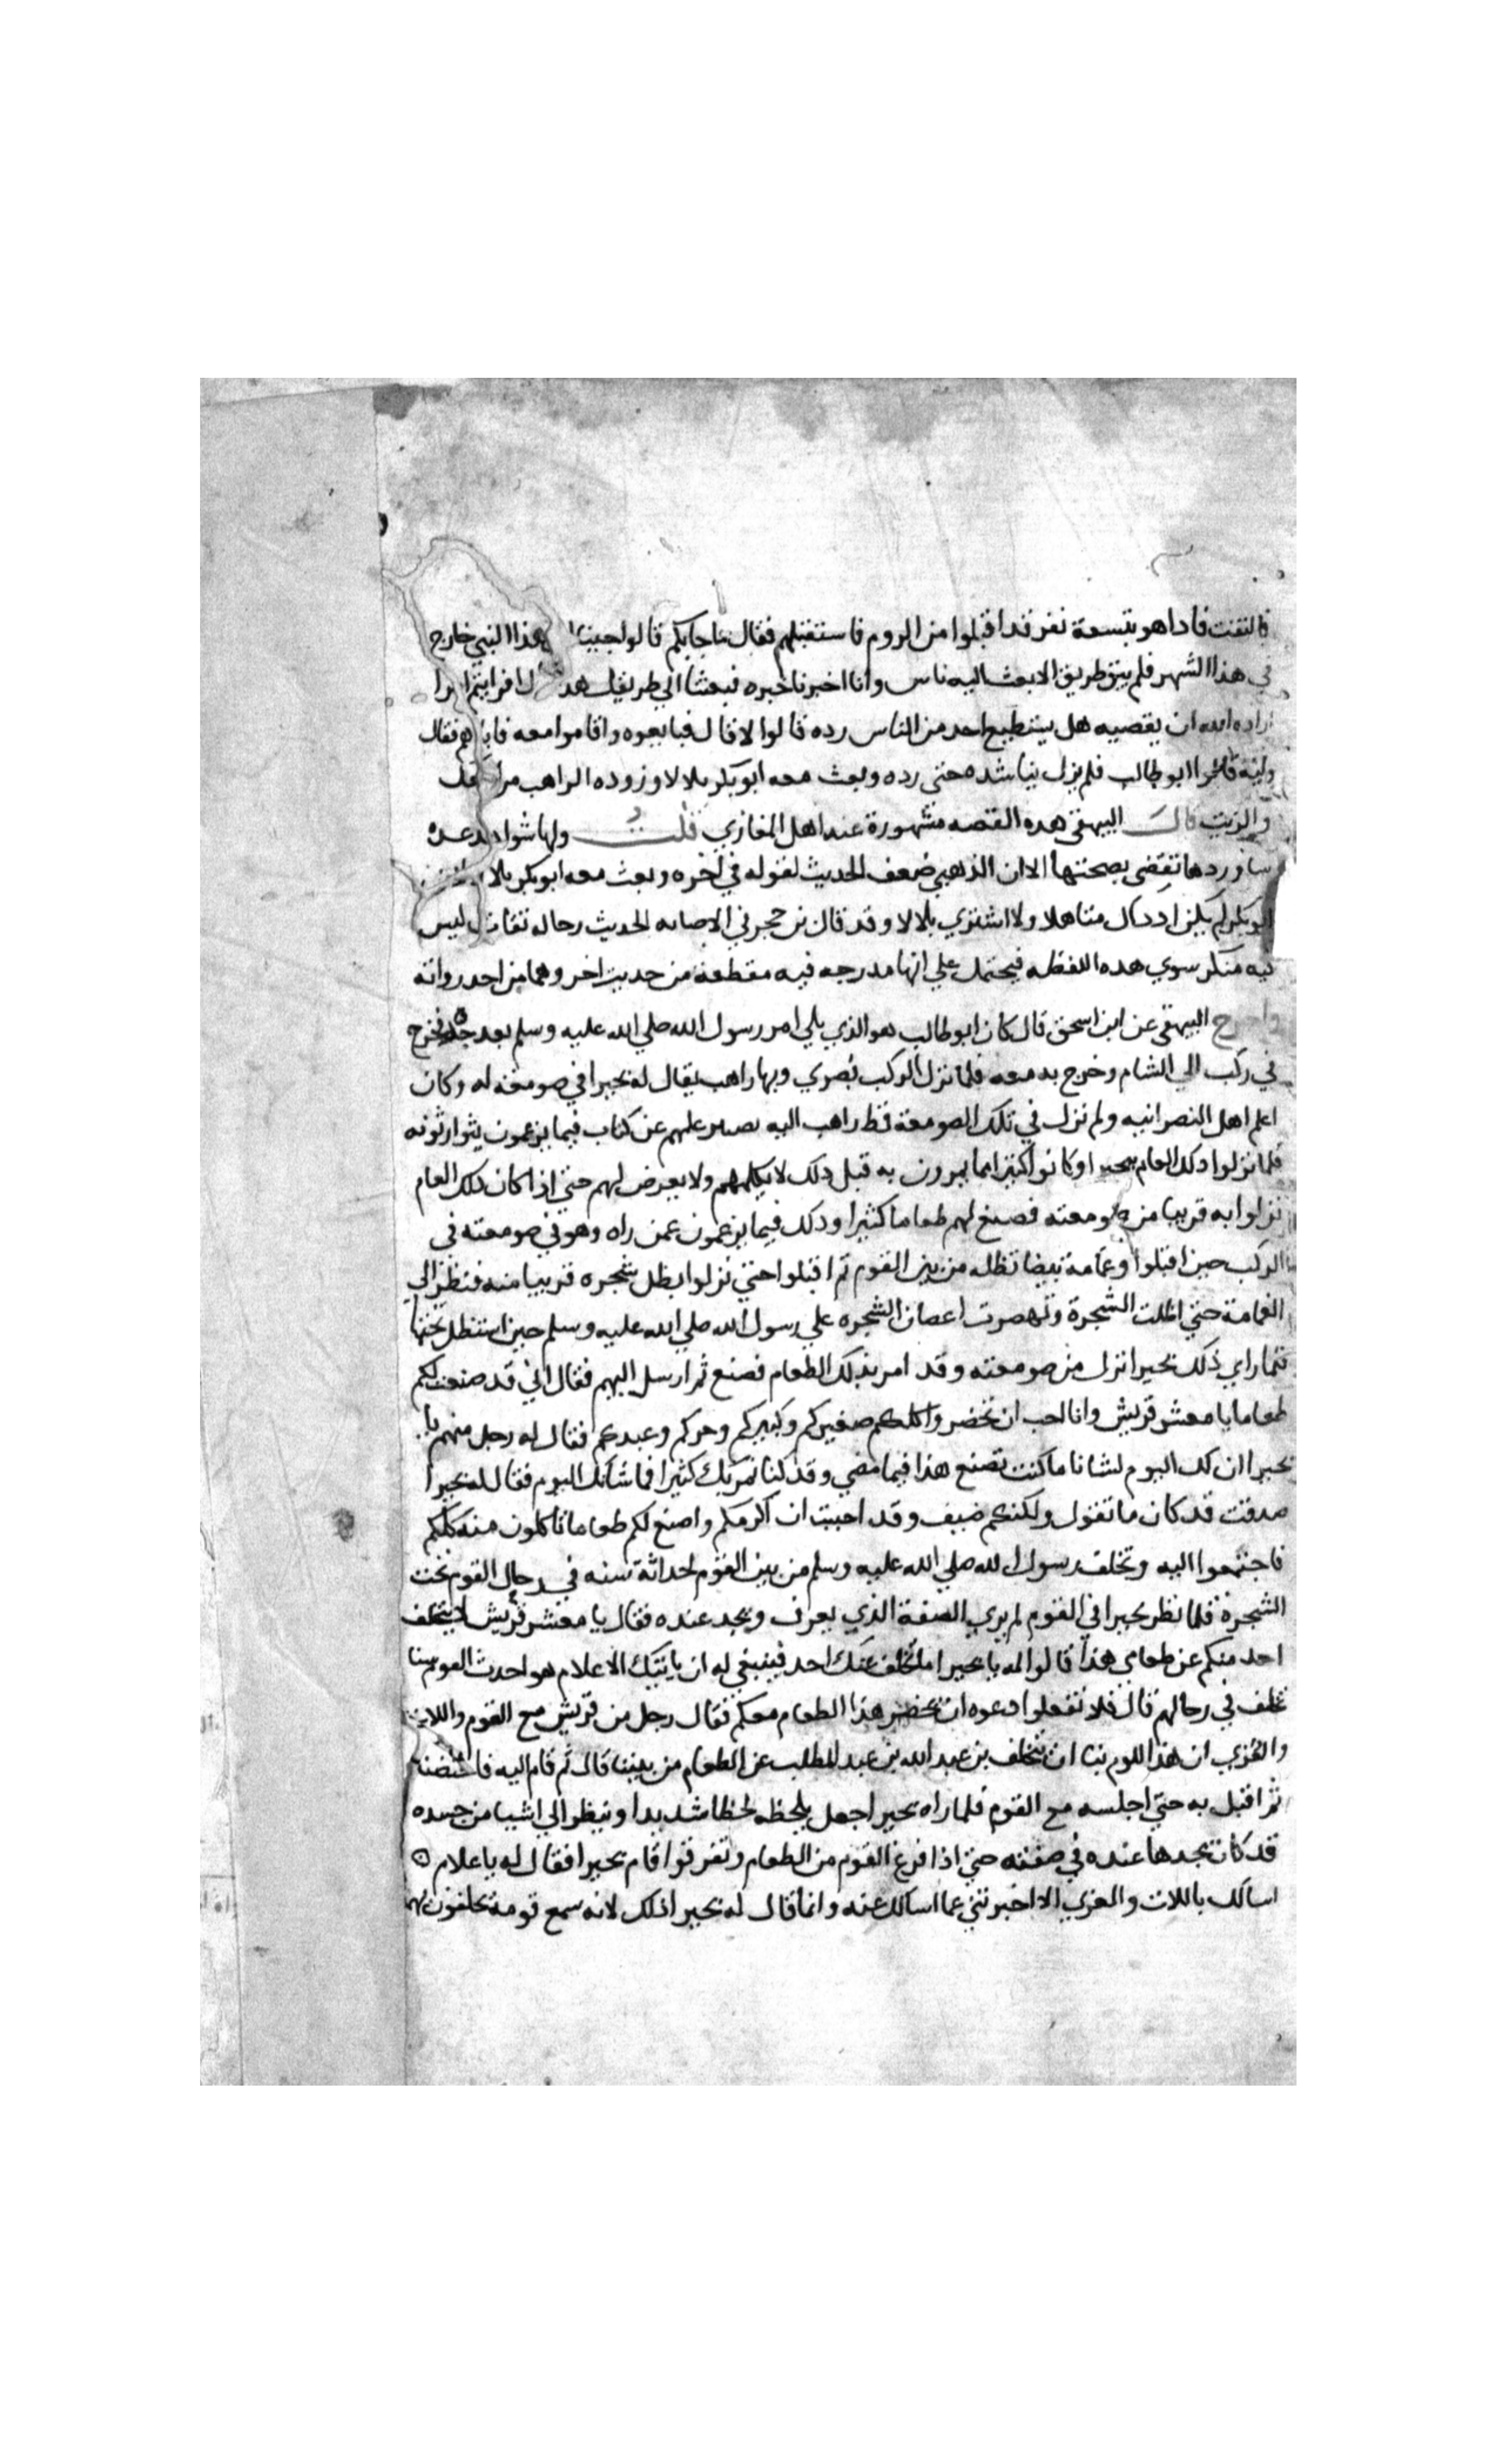 فالتفت فاداهو بتسعة نفر قد اقبلوا من الروم فاستقبلهم فقال ماجابكم قالوا جينا هذا النبي خارج
في هذا الشهر فلم يبق طريق الا بعث اليه ناس وانا اخبرنا خبره فبعثنا الي طريقك هدا قال افرايتم امرا
اراده الله ان يقضيه هل يستطيع احد من الناس رده قالوا لا قال فبايعوه واقاموا معه فاتاهم فقال
وليه قالوا ابو طالب فلم يزل يناشده حتي رده وبعث معه ابو بكر بلالا وزوده الراهب من
والزيت قال البيهقي هده القصه مشهورة عند اهل المغازي قلت ولها شواهد عده
ساوردها تقضي بصحتها الا ان الذهبي ضعف الحديث لقوله في اخره وبعث معه ابو بكر بلالا
ابو بكر لم يكن اددال متاهلا ولا اشتري بلالا وقد قال بن حجر في الاصابه الحديث رجاله ثقات ليس
فيه منكر سوي هده اللفظه فيحتمل علي انها مدرجه فيه مقطعة من حديث اخر وهما من احد رواته
واخرج البيهقي عن ابن اسحق قال كان ابو طالب هو الذي يلي امر رسول الله صلي الله عليه وسلم بعد جده فخرج
في ركب الي الشام وخرج به معه فلما نزل الركب بصري وبها راهب يقال له بحيرا في صومعة له وكان
اعلم اهل النصرانيه ولم نزل في تلك الصومعة قط راهب اليه يصير علمهم عن كتاب فيما يزعمون يتوارثونه
فلما نزلوا دلك العام ببحيرا وكانوا كثيرا مما يمرون به قبل دلك لا يكلمهم ولا يعرض لهم حتي اذا كان دلك العام
نزلوا به قريبا من صومعته فصنع لهم طعاما كثيرا ودلك فيما يزعمون عمن راه وهو في صومعته في
الركب حين اقبلوا وغمامة بيضا تظله من بين القوم ثم اقبلوا حتي نزلوا بظل شجره قريبا منه فنظر الي
الغمامة حتي اظلت الشجرة وتهصرت اعصان الشجره علي رسول الله صلي الله عليه وسلم حين استظل تحتها
فلما راي ذلك بحيرا نزل من صومعته وقد امر بذلك الطعام فصنع ثم ارسل اليهم فقال اني قد صنعت لكم
طعاما يا معشر قريش وانا احب ان تحضروا كلكم صغيركم وكبيركم وحركم وعبدكم فقال له رجل منهم يا
بحيرا ان لك اليوم لشانا ما كنت تصنع هذا فيما مضي وقد كنا نمر بك كثيرا فما شانك اليوم فقال له بحيرا
صدقت قد كان ما تقول ولكنكم ضيف وقد احببت ان اكرمكم واصنع لكم طعاما تاكلون منه كلكم
فاجتمعوا اليه وتخلف رسول الله صلي الله عليه وسلم من بين القوم لحداثة سنه في رحال القوم تحت
الشجرة فلما نظر بحيرا في القوم لم يري الصفة الذي يعرف ويجد عنده فقال يا معشر قريش لا يتخلف
احد منكم عن طعامي هذا قالوا له يا بحيرا ما تخلف عنك احد فينبغي له ان ياتيك الا علام هو احدث القوم سنا
تخلف في رحالهم قال فلا تفعلوا ادعوه ان يحضر هذا الطعام معكم فقال رجل من قريش مع القوم واللات
والعزي ان هذا اللوم بنا ان يتخلف بن عبد الله بن عبد المطلب عن الطعام من بيننا قال ثم قام اليه فاحتضنه
ثم اقبل به حتي اجلسه مع القوم فلما راه بحيرا جعل يلحظه لحظا شديدا وينظر الي اشيا من جسده
قد كان يجدها عنده في صفته حتي اذا فرغ القوم من الطعام وتفرقوا قام بحيرا فقال له يا علام
اسالك باللات والعزي الا اخبرتني عما اسالك عنه وانما قال له بحيرا ذلك لانه سمع قومه يحلفون بهما